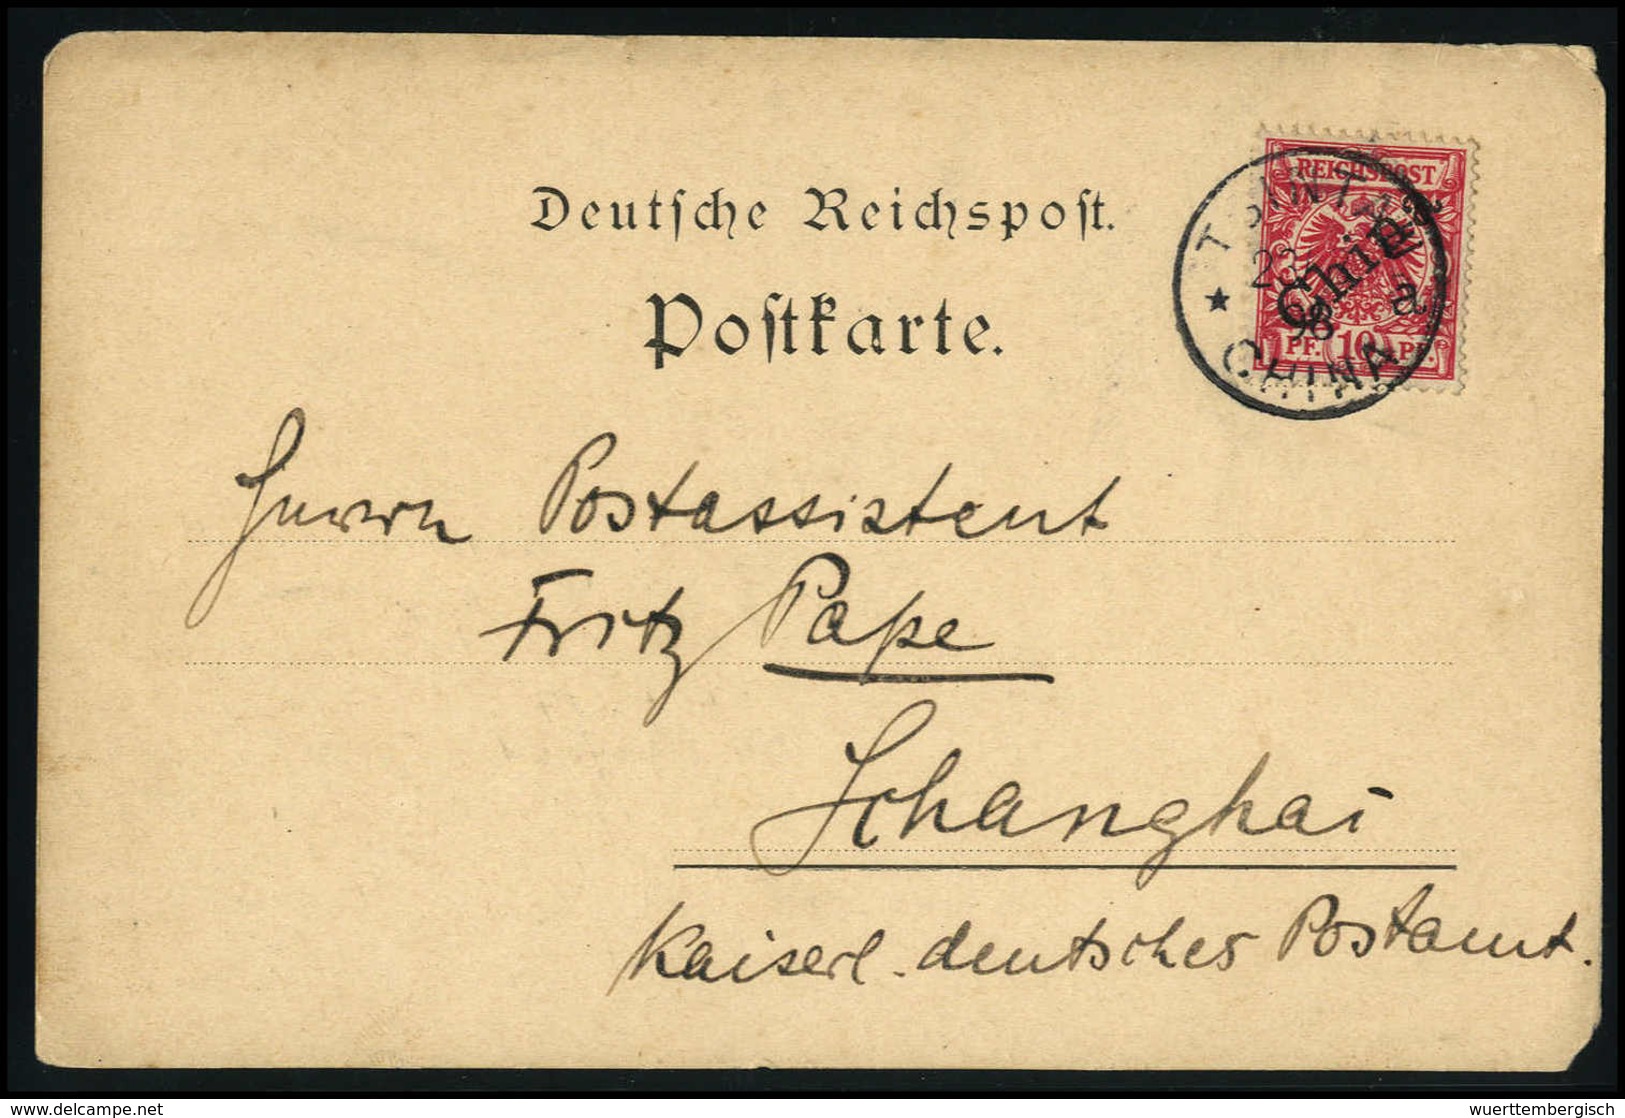 Deutsche Reichspost.
Postkarte.
REICHSPOST
China
PF. 10 PF.
TSINTAU
23
98
a
★ CHINA
Herrn Postassistent
Fritz Pape
Schanghai
Kaiserl. deutsches Postamt.
delcampe.net
wuerttembergisch